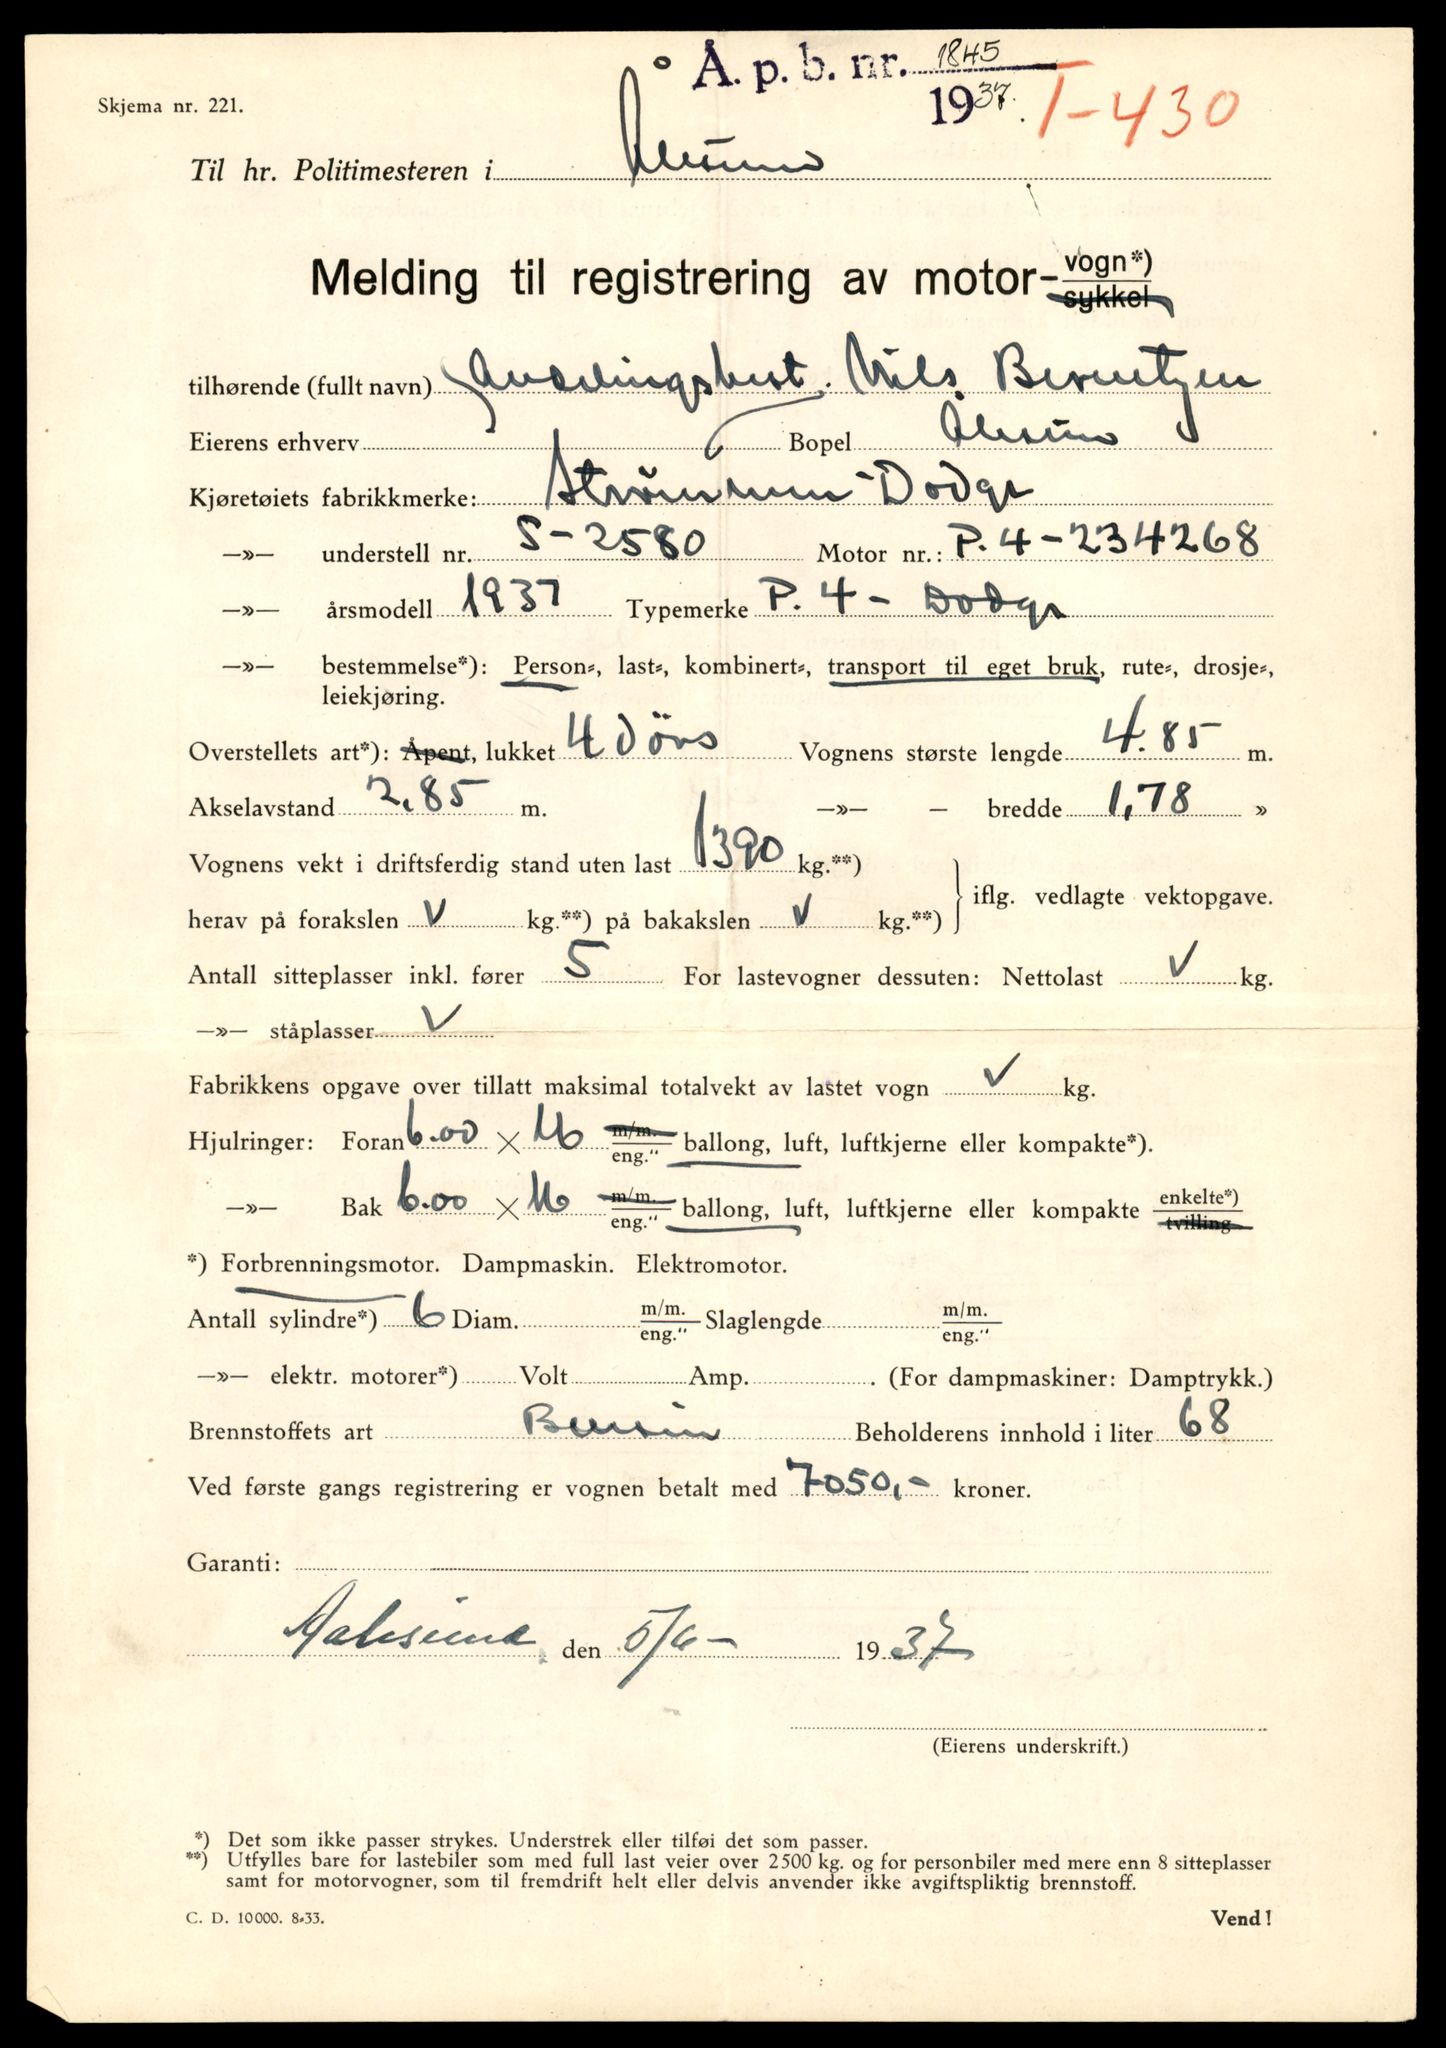 Å. p. b. nr. 1845
1937. T-430
Skjema nr. 221.
Til hr. Politimesteren i Ålesund
Melding til registrering av motor- vogn*)
sykkel
tilhørende (fullt navn) Avdelingsbest. Nils Berentzen
Eierens erhverv Bopel Ålesund
Kjøretøiets fabrikkmerke: Strömmen-Dodge
—»— understell nr. S-2580 Motor nr.: P.4-234268
—»— årsmodell 1937 Typemerke P.4-Dodge
—»— bestemmelse*): Person-, last-, kombinert-, transport til eget bruk, rute-, drosje-,
leiekjøring.
Overstellets art*): Åpent, lukket 4 Dörs Vognens største lengde 4.85 m.
Akselavstand 2,85 m. —»— — bredde 1,78 »
Vognens vekt i driftsferdig stand uten last 1390 kg.**)
iflg. vedlagte vektopgave.
herav på forakslen √ kg.**) på bakakslen √ kg.**)
Antall sitteplasser inkl. fører 5 For lastevogner dessuten: Nettolast √ kg.
—»— ståplasser √
Fabrikkens opgave over tillatt maksimal totalvekt av lastet vogn √ kg.
Hjulringer: Foran 6.00 × 16 m/m. eng." ballong, luft, luftkjerne eller kompakte*).
—»— Bak 6.00 × 16 m/m. eng." ballong, luft, luftkjerne eller kompakte enkelte*) tvilling
*) Forbrenningsmotor. Dampmaskin. Elektromotor.
Antall sylindre*) 6 Diam. m/m. eng." Slaglengde m/m. eng."
—»— elektr. motorer*) Volt Amp. . (For dampmaskiner: Damptrykk.)
Brennstoffets art Bensin Beholderens innhold i liter 68
Ved første gangs registrering er vognen betalt med 7050,- kroner.
Garanti:
Aalesund, den 5/6- 1937
(Eierens underskrift.)
*) Det som ikke passer strykes. Understrek eller tilføi det som passer.
**) Utfylles bare for lastebiler som med full last veier over 2500 kg. og for personbiler med mere enn 8 sitteplasser
samt for motorvogner, som til fremdrift helt eller delvis anvender ikke avgiftspliktig brennstoff.
C. D. 10000. 8-33. Vend!